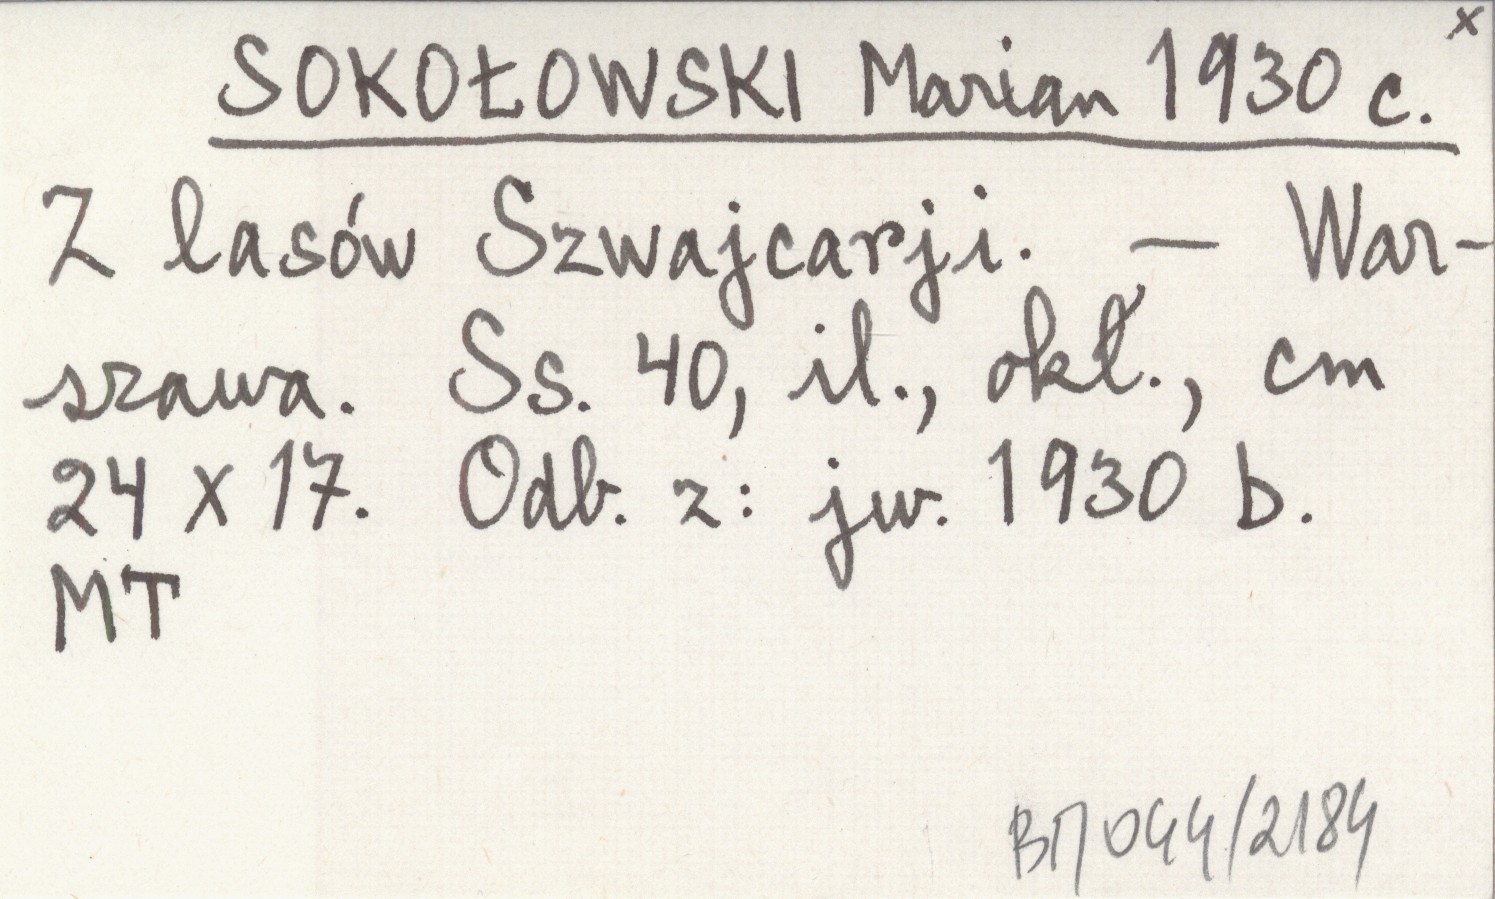 x
SOKOŁOWSKI Marian 1930 c.
Z lasów Szwajcarji. — War-
szawa. Ss. 40, il., okł., cm
24 x 17. Odb. z: jw. 1930 b.
MT
BM 044/2184